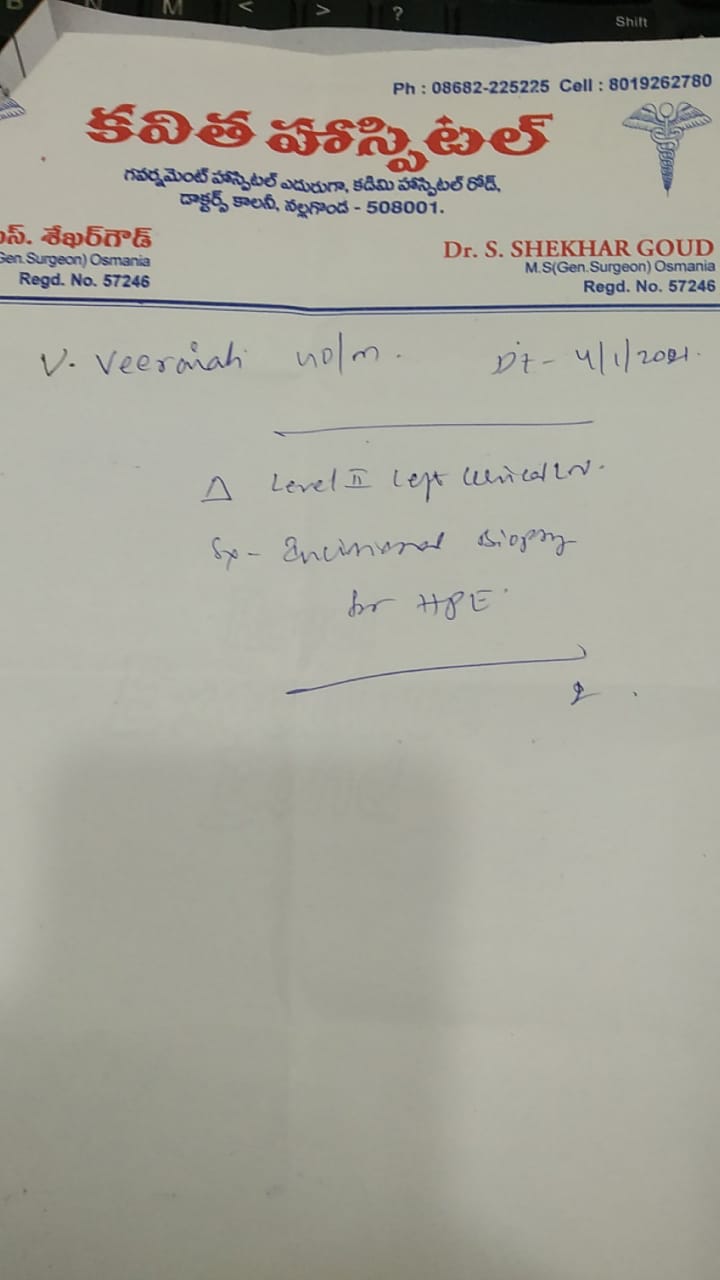 M < > ? Shift
Ph : 08682-225225 Cell : 8019262780
కవిత హాస్పిటల్
గవర్నమెంట్ హాస్పిటల్ ఎదురుగా, కడిమి హాస్పిటల్ రోడ్,
డాక్టర్స్ కాలనీ, నల్లగొండ - 508001.
ఎస్. శేఖర్‌గౌడ్
Gen.Surgeon) Osmania
Regd. No. 57246
Dr. S. SHEKHAR GOUD
M.S(Gen.Surgeon) Osmania
Regd. No. 57246
V. Veeraiah 40/m. Dt - 4/1/2021.
Δ Level II Left cervical LN.
Sx - Excisional Biopsy
for HPE